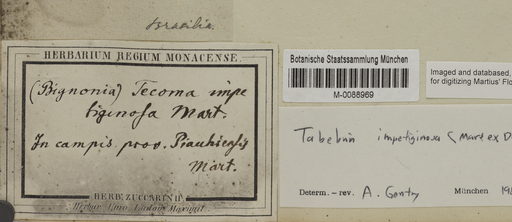 Brasilia.
HERBARIUM REGIUM MONACENSE.
(Bignonia) Tecoma impe
tiginosa Mart.
In campis prov. Piauhiensis
Mart.
HERB. ZUCCARINII
Botanische Staatssammlung München
M-0088969
Imaged and databased,
for digitizing Martius' Flo
Tabebuia impetiginosa (Mart ex D
Determ. – rev. A. Gentry München 19